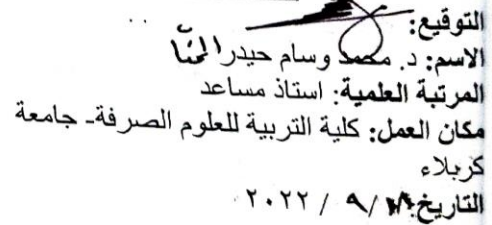 التوقيع:
الاسم: د. محمد وسام حيدر المحنا
المرتبة العلمية: استاذ مساعد
مكان العمل: كلية التربية للعلوم الصرفة- جامعة
كربلاء
التاريخ: / ٩ / ٢٠٢٢